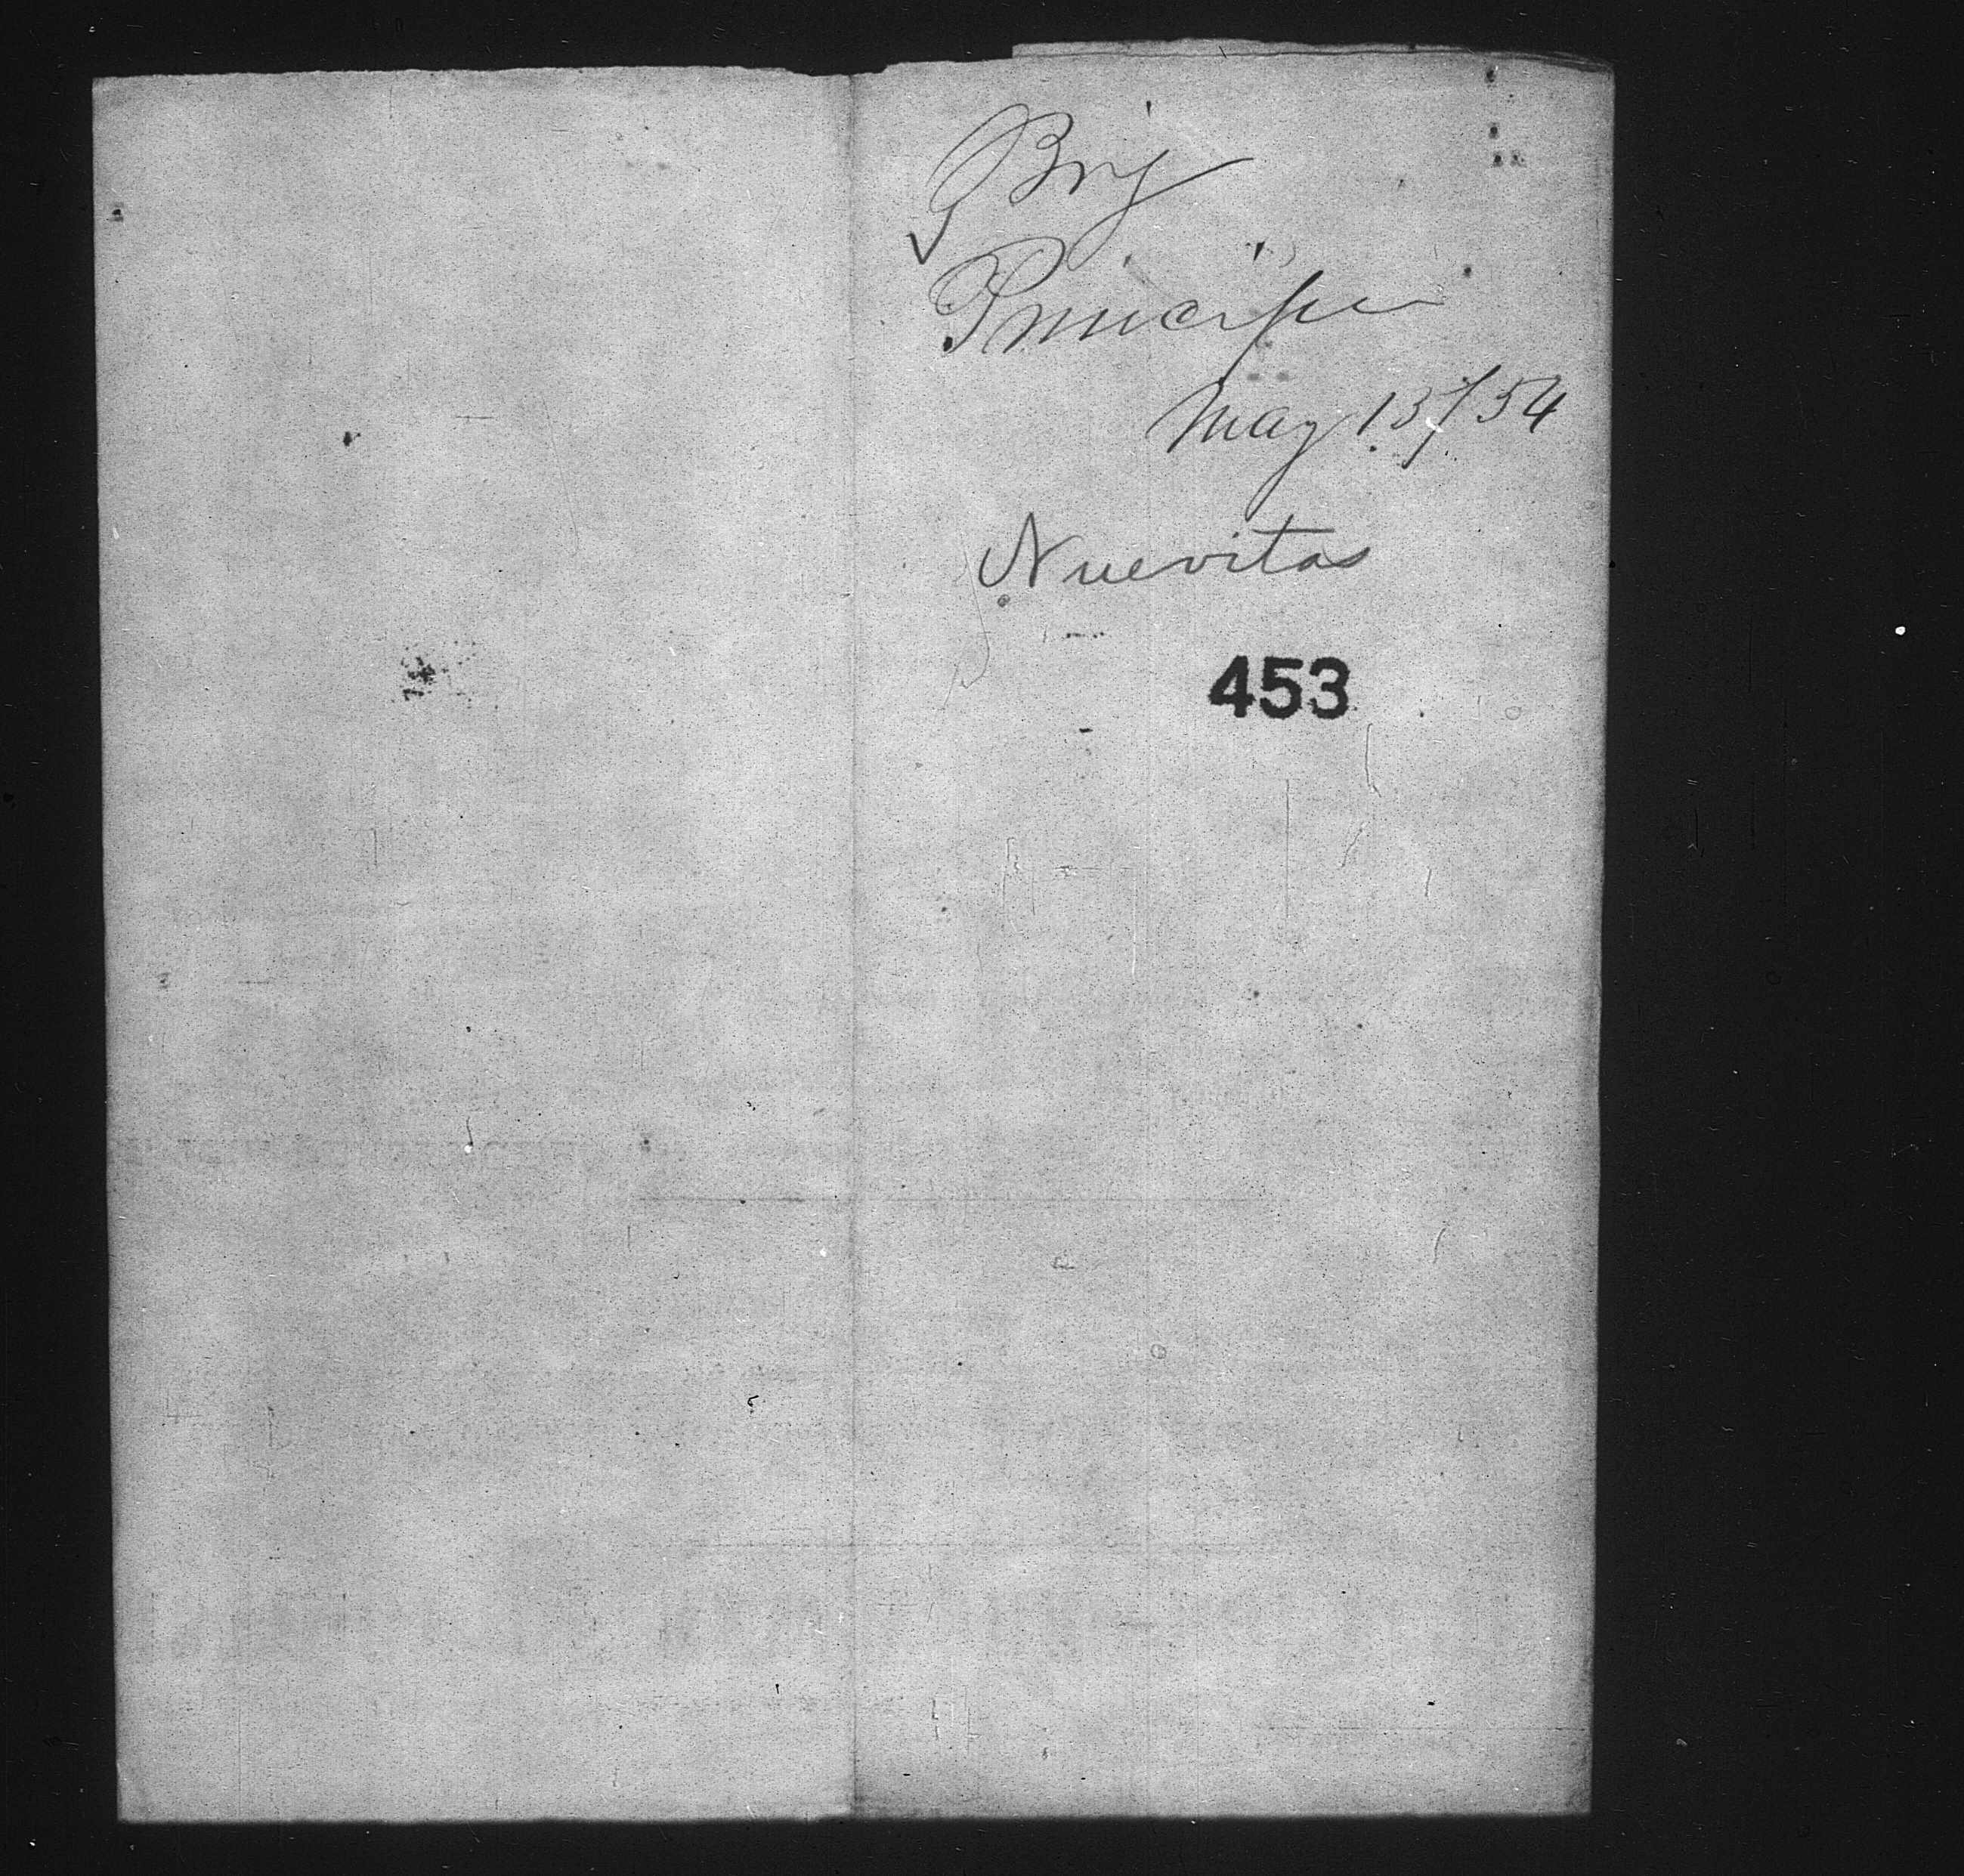 Brig
Principe
May 13/54
Nuevitas
453